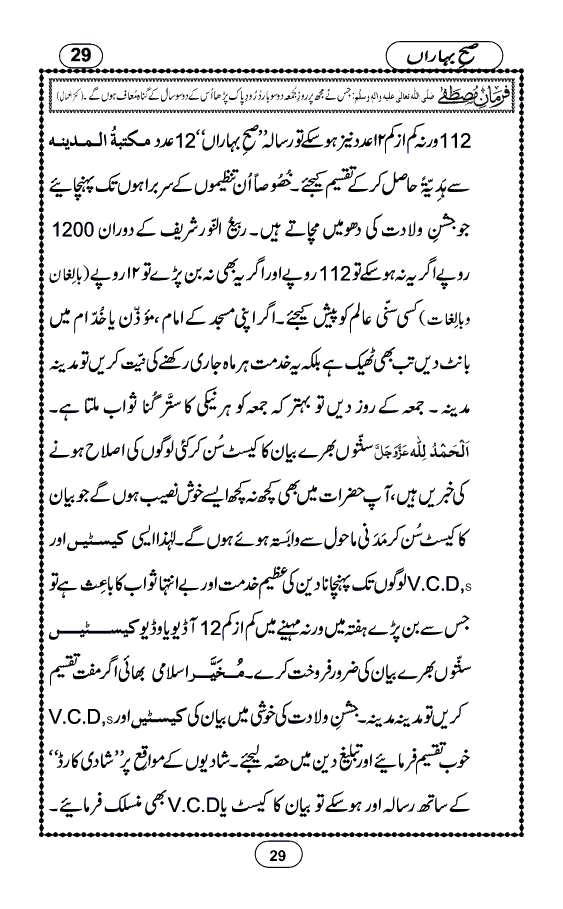 صبحِ بہاراں
29
فرمانِ مُصطَفٰے صلّی اللہ تعالیٰ علیہ والہٖ وسلّم: جس نے مجھ پر روزِ جُمعہ دو سو بار دُرُود پاک پڑھا اُس کے دو سو سال کے گناہ مُعاف ہوں گے۔ (کنز العمال)
112 ورنہ کم از کم ۱۲ عدد نیز ہو سکے تو رسالہ ’’صبحِ بہاراں‘‘ 12 عدد مکتبۃُ المدینہ
سے ہَدِیَّۃً حاصل کر کے تقسیم کیجئے۔ خُصُوصاً اُن تنظیموں کے سربراہوں تک پہنچائیے
جو جشنِ ولادت کی دھومیں مچاتے ہیں۔ ربیعُ النّور شریف کے دوران 1200
روپے اگر یہ نہ ہو سکے تو 112 روپے اور اگر یہ بھی نہ بن پڑے تو ۱۲ روپے (بالِغان
وبالِغات) کسی سنّی عالم کو پیش کیجئے۔ اگر اپنی مسجد کے امام، مؤذّن یا خُدّام میں
بانٹ دیں تب بھی ٹھیک ہے بلکہ یہ خدمت ہر ماہ جاری رکھنے کی نیّت کریں تو مدینہ
مدینہ۔ جمعہ کے روز دیں تو بہتر کہ جمعہ کو ہر نیکی کا ستّر گُنا ثواب ملتا ہے۔
اَلْحَمْدُ لِلّٰہ عَزَّوَجَلَّ سنّتوں بھرے بیان کا کیسٹ سُن کر کئی لوگوں کی اصلاح ہونے
کی خبریں ہیں، آپ حضرات میں بھی کچھ نہ کچھ ایسے خوش نصیب ہوں گے جو بیان
کا کیسٹ سُن کر مَدَنی ماحول سے وابَستہ ہوئے ہوں گے۔ لہٰذا ایسی کیسٹیں اور
V.C.D,s لوگوں تک پہنچانا دین کی عظیم خدمت اور بے انتہا ثواب کا باعِث ہے تو
جس سے بن پڑے ہفتہ میں ورنہ مہینے میں کم از کم 12 آڈیو یا وڈیو کیسٹیں
سنّتوں بھرے بیان کی ضرور فروخت کرے۔ مُخَیَّر اسلامی بھائی اگر مفت تقسیم
کریں تو مدینہ مدینہ۔ جشنِ ولادت کی خوشی میں بیان کی کیسٹیں اور V.C.D,s
خوب تقسیم فرمائیے اور تبلیغِ دین میں حصّہ لیجئے۔ شادیوں کے مواقع پر ’’شادی کارڈ‘‘
کے ساتھ رسالہ اور ہو سکے تو بیان کا کیسٹ یا V.C.D بھی منسلک فرمائیے۔
29